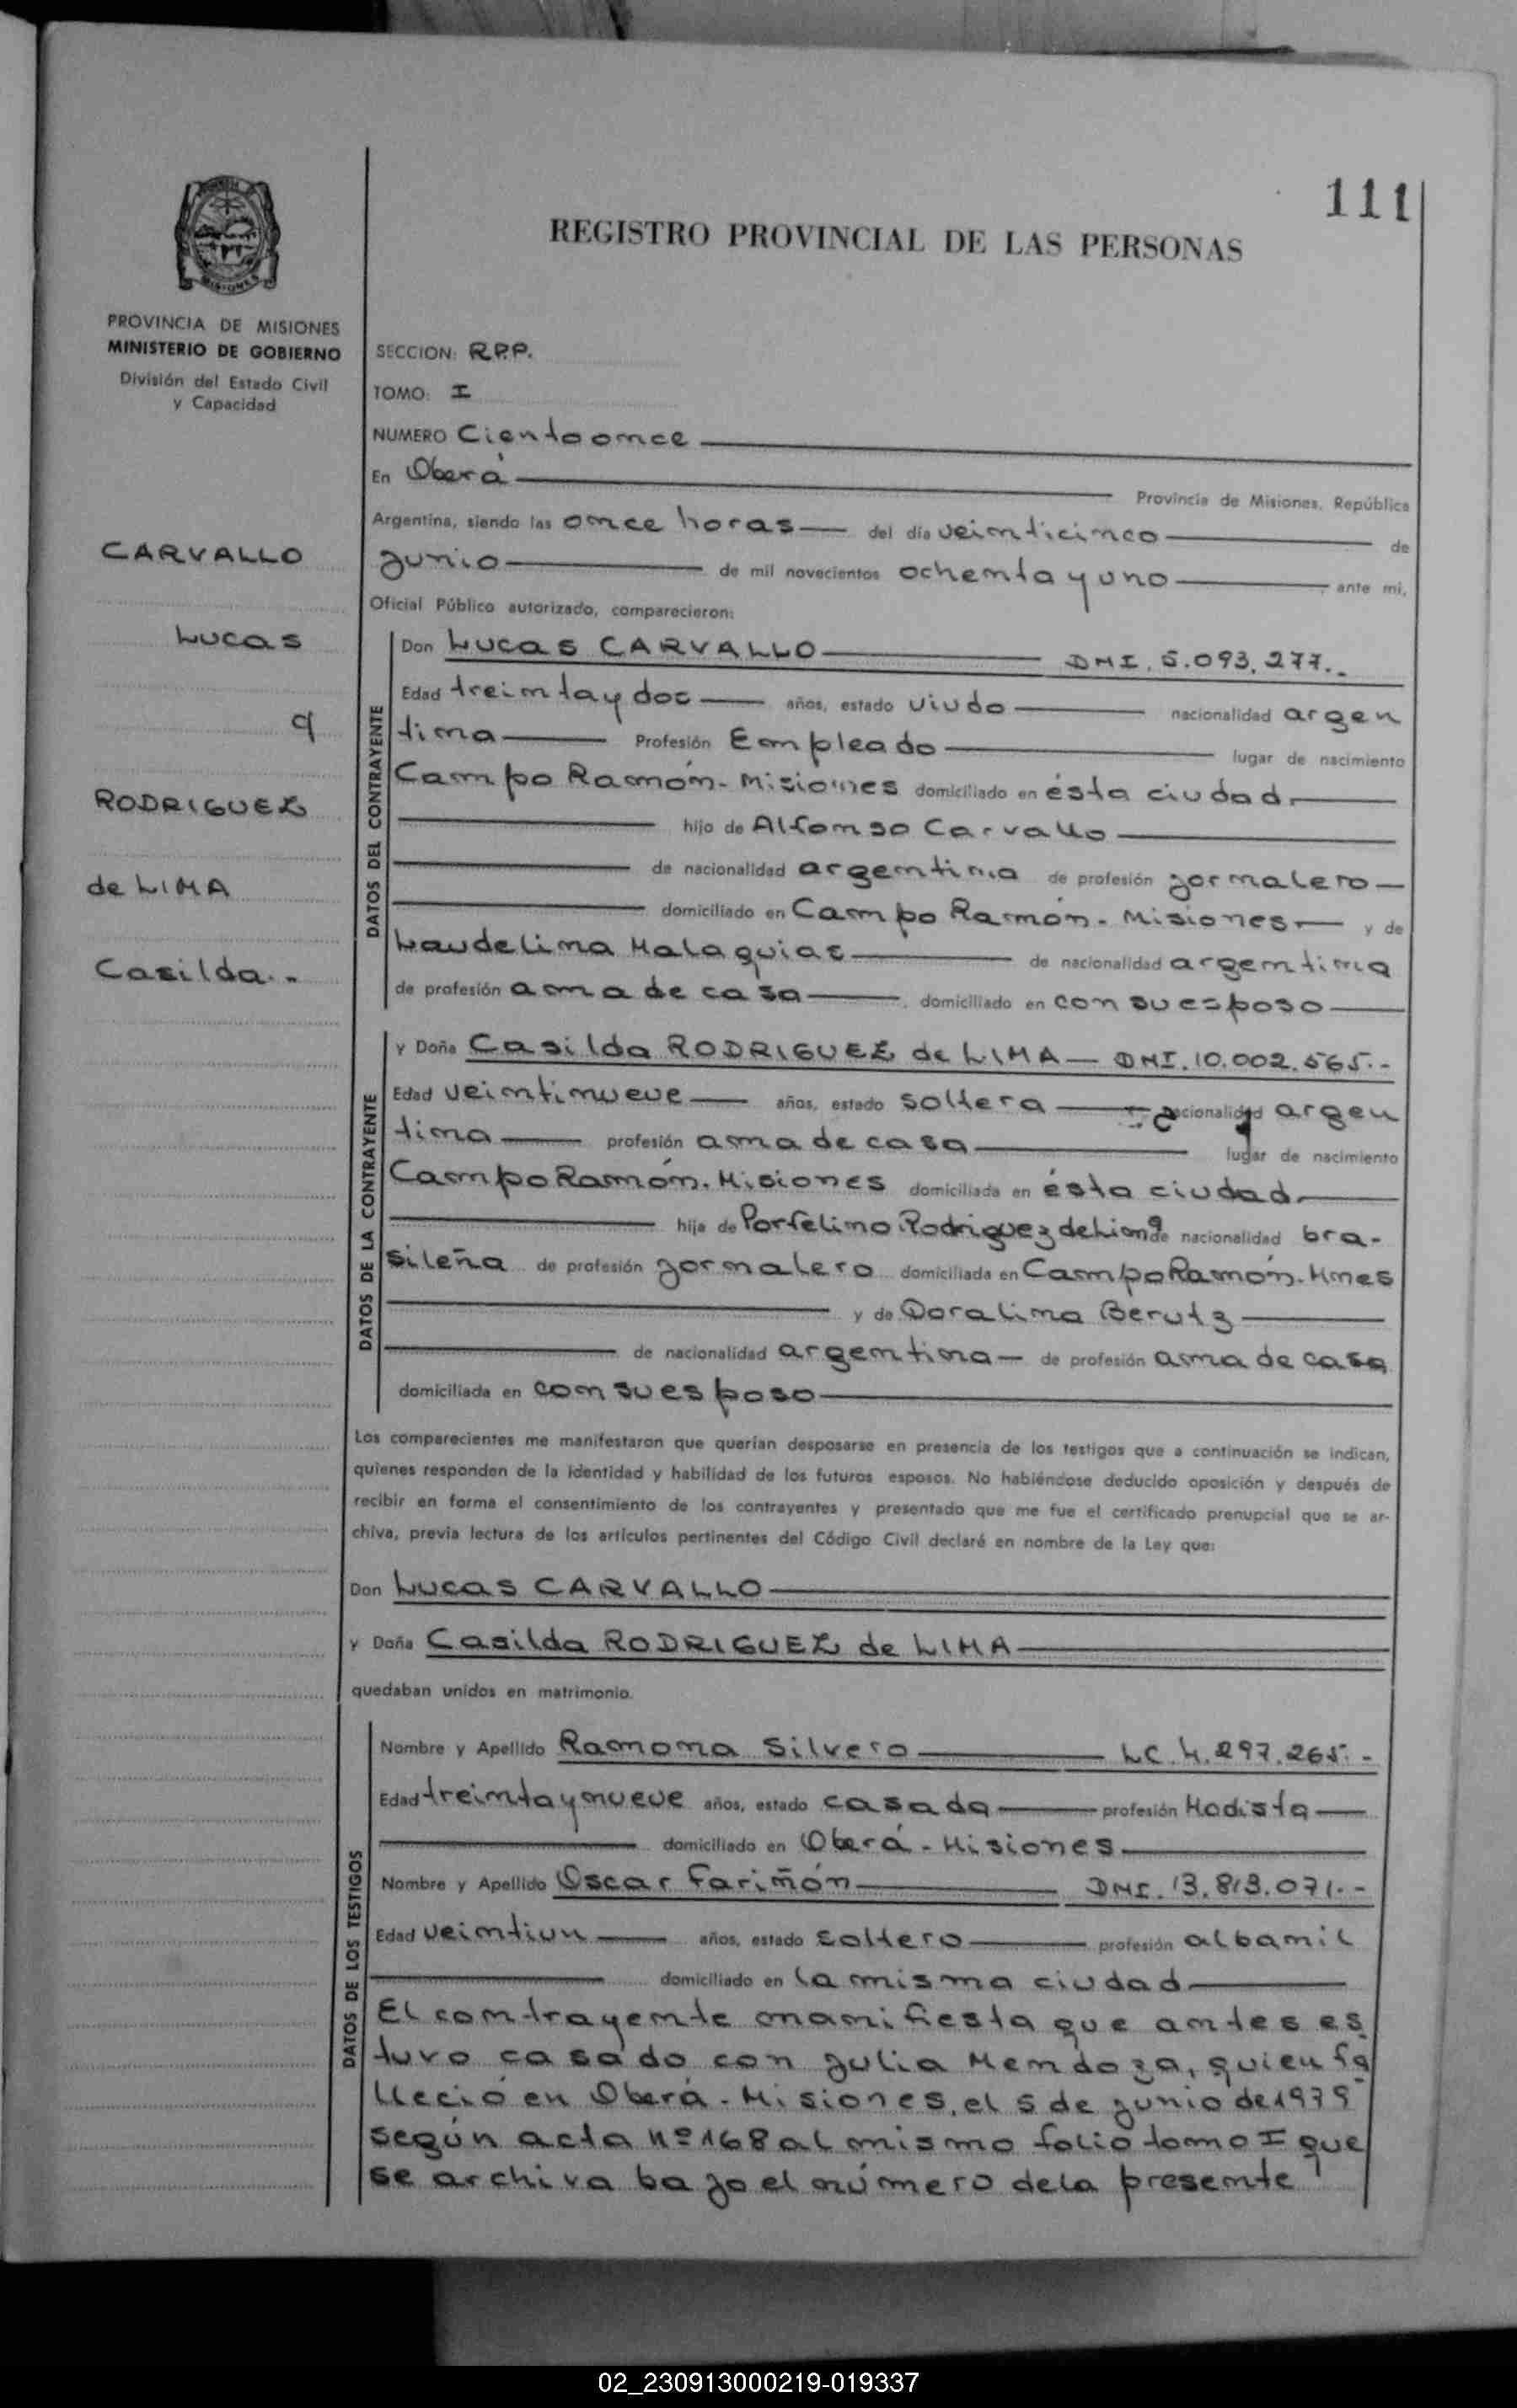 111
REGISTRO PROVINCIAL DE LAS PERSONAS
PROVINCIA DE MISIONES
MINISTERIO DE GOBIERNO
División del Estado Civil
y Capacidad
CARVALLO
Lucas
RODRIGUEZ
de LIMA
Casilda.-
SECCION: R.P.P.
TOMO: I
NUMERO Ciento once
En Oberá Provincia de Misiones, República
Argentina, siendo las once horas del día veinticinco de
junio de mil novecientos ochenta y uno ante mi,
Oficial Público autorizado, comparecieron:
DATOS DEL CONTRAYENTE
Don Lucas CARVALLO DNI. 5.093.277.-
Edad treinta y dos años, estado viudo nacionalidad argen
tina Profesión Empleado lugar de nacimiento
Campo Ramón - Misiones domiciliado en ésta ciudad.
hijo de Alfonso Carvallo
de nacionalidad argentina de profesión jornalero
domiciliado en Campo Ramón - Misiones y de
Laudelina Malaquias de nacionalidad argentina
de profesión ama de casa domiciliado en con su esposo
DATOS DE LA CONTRAYENTE
y Doña Casilda RODRIGUEZ de LIMA DNI. 10.002.565.-
Edad veintinueve años, estado soltera nacionalidad argen
tina profesión ama de casa lugar de nacimiento
Campo Ramón. Misiones domiciliada en ésta ciudad.
hija de Porfelino Rodriguez de Lima de nacionalidad bra-
sileña de profesión jornalero domiciliada en Campo Ramón. Mnes
y de Doralina Berutz
de nacionalidad argentina de profesión ama de casa
domiciliada en con su esposo
Los comparecientes me manifestaron que querían desposarse en presencia de los testigos que a continuación se indican,
quienes responden de la identidad y habilidad de los futuros esposos. No habiéndose deducido oposición y después de
recibir en forma el consentimiento de los contrayentes y presentado que me fue el certificado prenupcial que se ar-
chiva, previa lectura de los artículos pertinentes del Código Civil declaré en nombre de la Ley que:
Don Lucas CARVALLO
y Doña Casilda RODRIGUEZ de LIMA
quedaban unidos en matrimonio.
DATOS DE LOS TESTIGOS
Nombre y Apellido Ramona Silvero LC. 4.297.265.-
Edad treinta y nueve años, estado casada profesión Modista
domiciliado en Oberá - Misiones
Nombre y Apellido Oscar Fariñón DNI. 13.813.071.-
Edad veintiun años, estado soltero profesión albamil
domiciliado en la misma ciudad
El contrayente manifiesta que antes es
tuvo casado con Julia Mendoza, quien fa
lleció en Oberá - Misiones, el 5 de junio de 1979
según acta nº 168 al mismo folio tomo I que
se archiva bajo el número de la presente
02_230913000219-019337